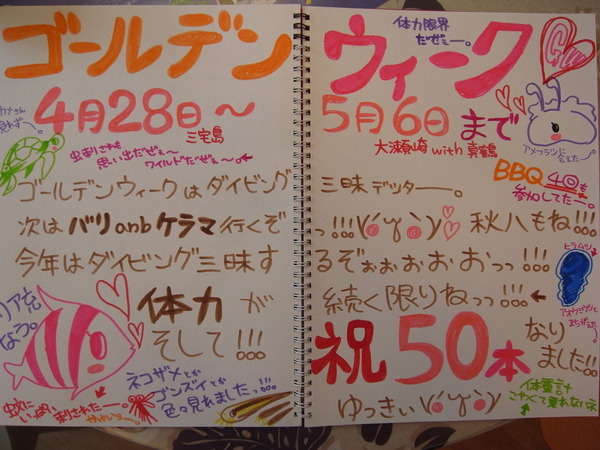 ゴールデン ウィーク
体力限界
だぜぇー。
4月28日～ 5月6日まで
三宅島
大瀬崎 with 真鶴
虫刺されも
思い出だぜぇ～
ワイルドだぜぇ～。
アメフラシに
BBQ 40も
参加してたー。
ゴールデンウィークはダイビング 三昧デッターー。
次はバリ anb ケラマ 行くぞ っ!!! 秋八もね!!!
今年はダイビング三昧す るぞぉぉぉぉおっっ!!!
ヒラムシ
リア充
なう。
体力が 続く限りねっっ!!!
そして!!! 祝50本 なり
ました!!
ネコザメとか
ゴンズイとか
色々見れましたっ!!!
蚊に
いっぱい刺されたー。
体重計
こわくて乗れない
ゆっきぃ